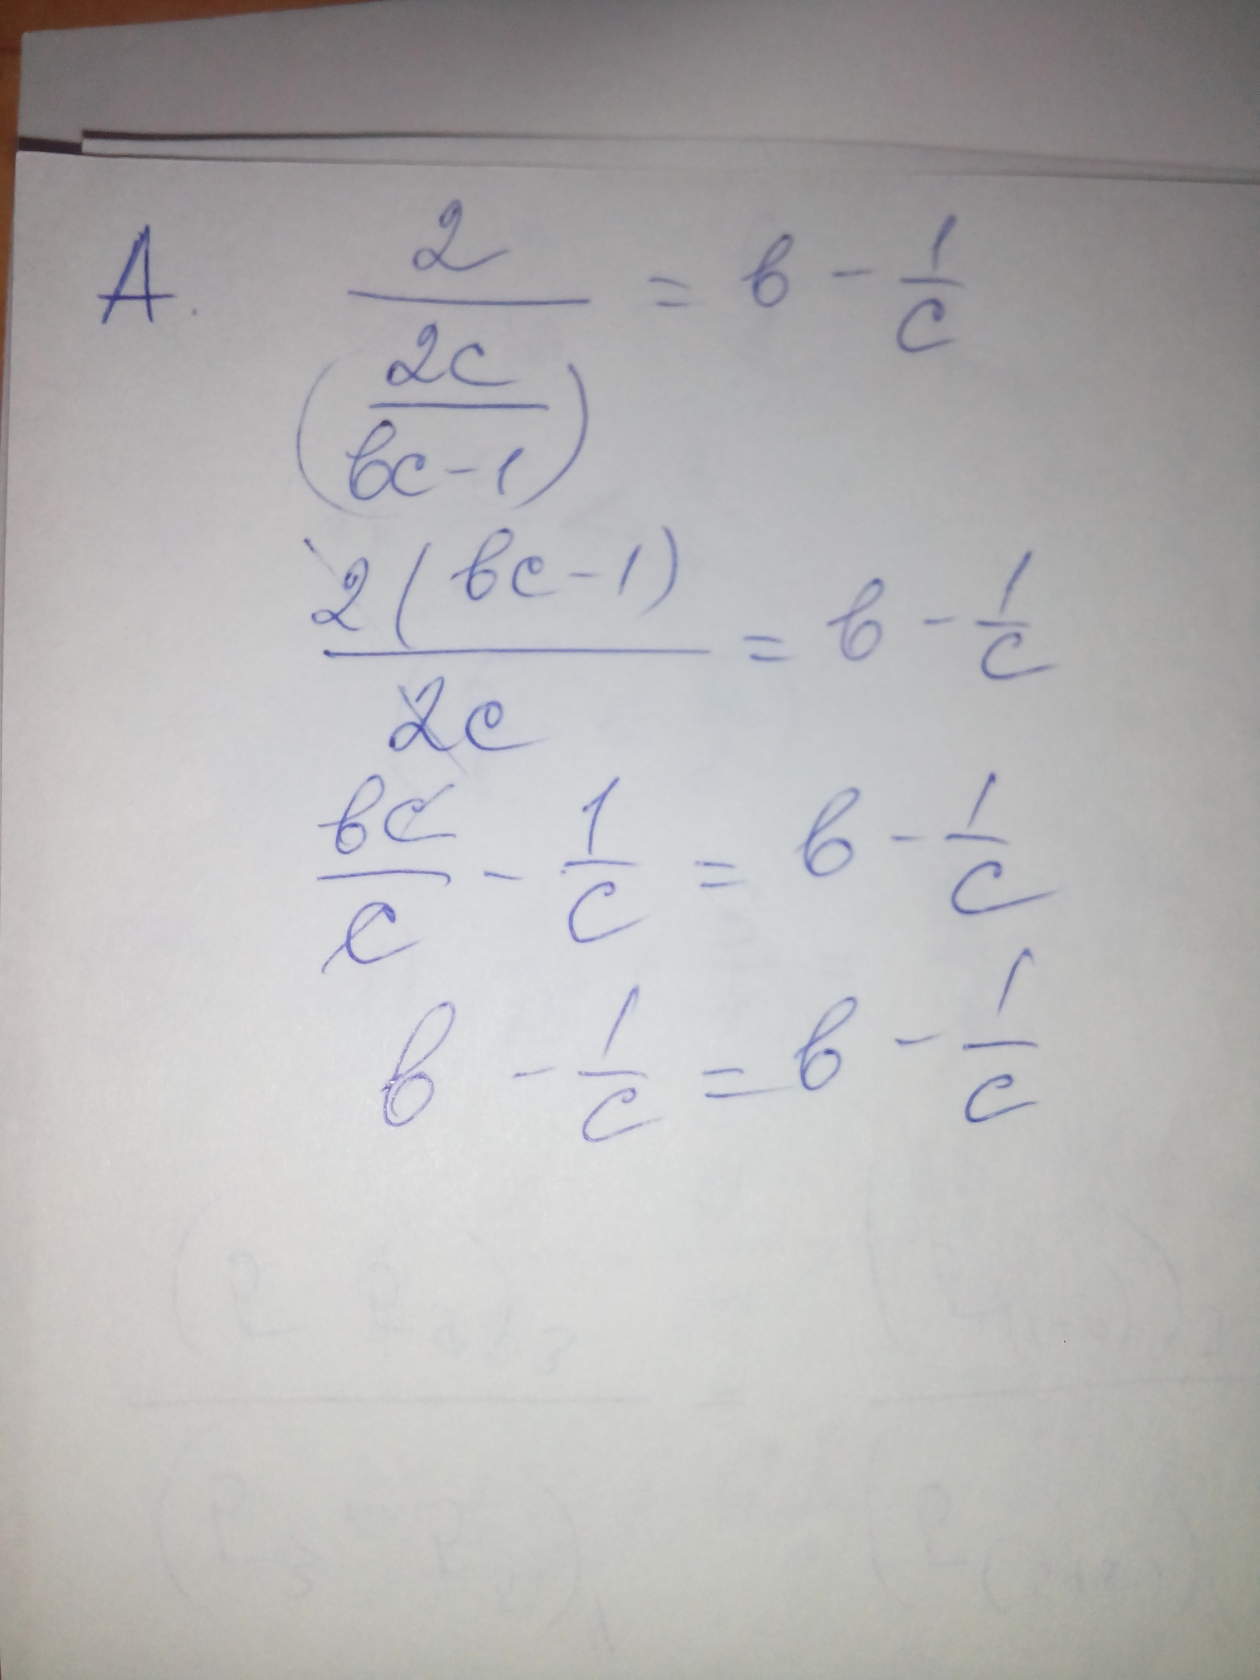 A. 2/(2c/(bc-1)) = b - 1/c
2(bc-1)/2c = b - 1/c
bc/c - 1/c = b - 1/c
b - 1/c = b - 1/c